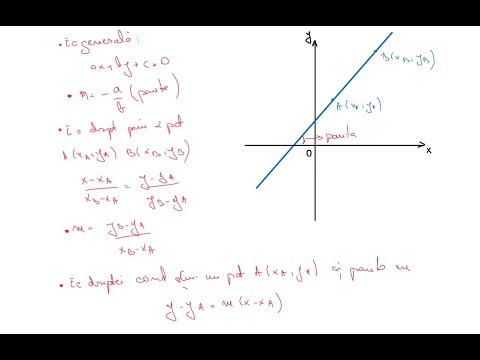 • Ec generală:
ax+by+c=0
• m = - a/b (panta)
• Ec drept prin 2 pct
A(xA, yA) B(xB, yB)
x-xA/xB-xA = y-yA/yB-yA
• m = yB-yA/xB-xA
• Ec dreptei când știm un pct A(xA, yA) și panta m
y-yA = m(x-xA)
y
B(xB, yB)
A(xA, yA)
panta
O
x